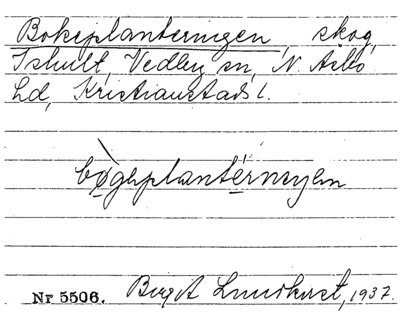 Bokeplanteringen, skog,
Ishult, Vedby sn, N. Åsbo
hd, Kristianstads l.
bøgeplantérinngen
Nr 5506. Birgit Lundkvist, 1937.